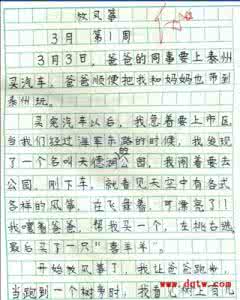 放风筝
3月 第1周
3月3日，爸爸的同事要上泰州
买汽车，爸爸顺便把我和妈妈也带到
泰州玩。
买完汽车以后，我急着要上市区
当我们经过海军东路的时候，我发现
了一个名叫天德湖公园，我闹着要去
公园。刚下车，就看见天空中有各式
各样的风筝，在飞舞着，可漂亮了！
我嚷着爸爸，帮我买一个，左挑右选
最后买了一只“喜羊羊”。
开始放风筝了，我让爸爸跑步，
当跑到一个树旁时，我看见树上有几
www.dqtw.com